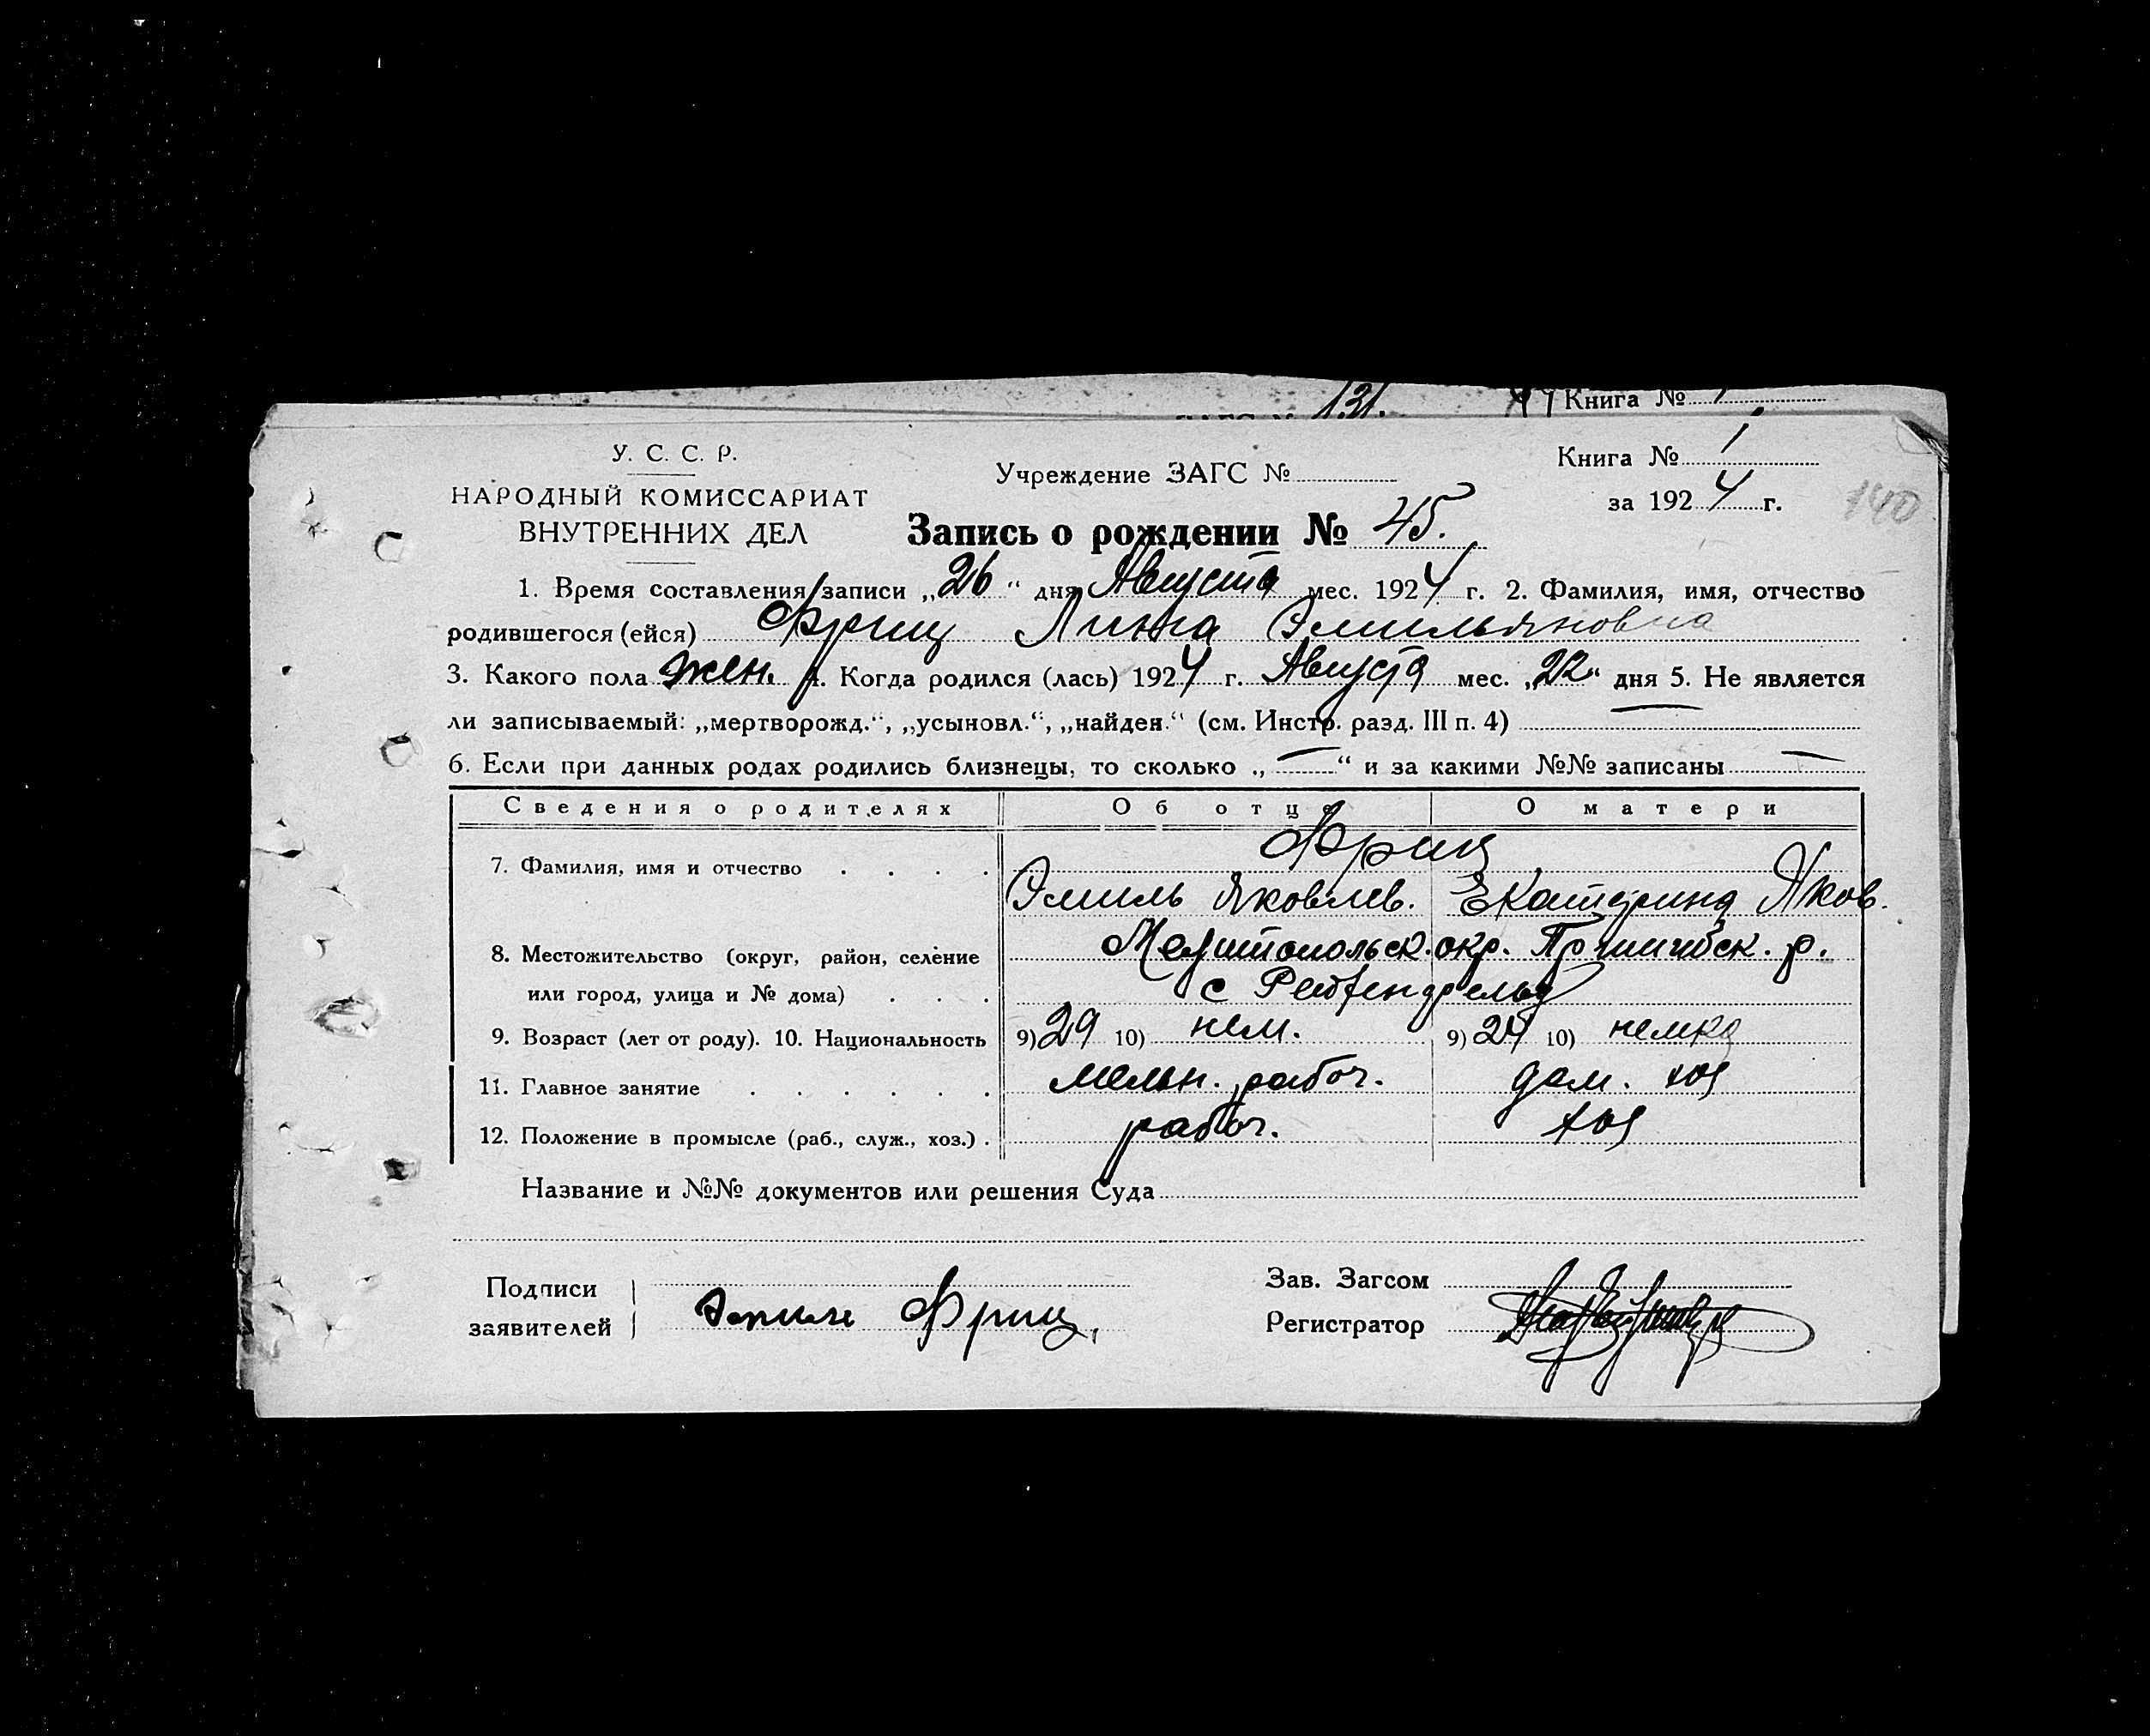 131. 44 Книга № 1
У. С. С. Р.
НАРОДНЫЙ КОМИССАРИАТ
ВНУТРЕННИХ ДЕЛ
Учреждение ЗАГС №
Книга № 1
за 1924 г.
140
Запись о рождении № 45.
1. Время составления записи „26" дня Августа мес. 1924 г. 2. Фамилия, имя, отчество
родившегося (ейся) Фриц Лина Эмильяновна
3. Какого пола жен. 4. Когда родился (лась) 1924 г. Августа мес. „22" дня 5. Не является
ли записываемый: „мертворожд.", „усыновл.", „найден." (см. Инстр. разд. III п. 4) —
6. Если при данных родах родились близнецы, то сколько „—" и за какими №№ записаны —
Сведения о родителях Об отце О матери
Фриц
7. Фамилия, имя и отчество . . . .
Эмиль Яковлев. Екатерина Яков.
8. Местожительство (округ, район, селение Мелитопольск. окр. Пришибск. р.
или город, улица и № дома) . . . с
9. Возраст (лет от роду). 10. Национальность 9) 29 10) нем. 9) 24 10) немка
11. Главное занятие . . . . . . мельн. рабоч. дом. хоз
12. Положение в промысле (раб., служ., хоз.) . рабоч. хоз
Название и №№ документов или решения Суда
Подписи
заявителей
Эмиль Фриц,
Зав. Загсом
Регистратор